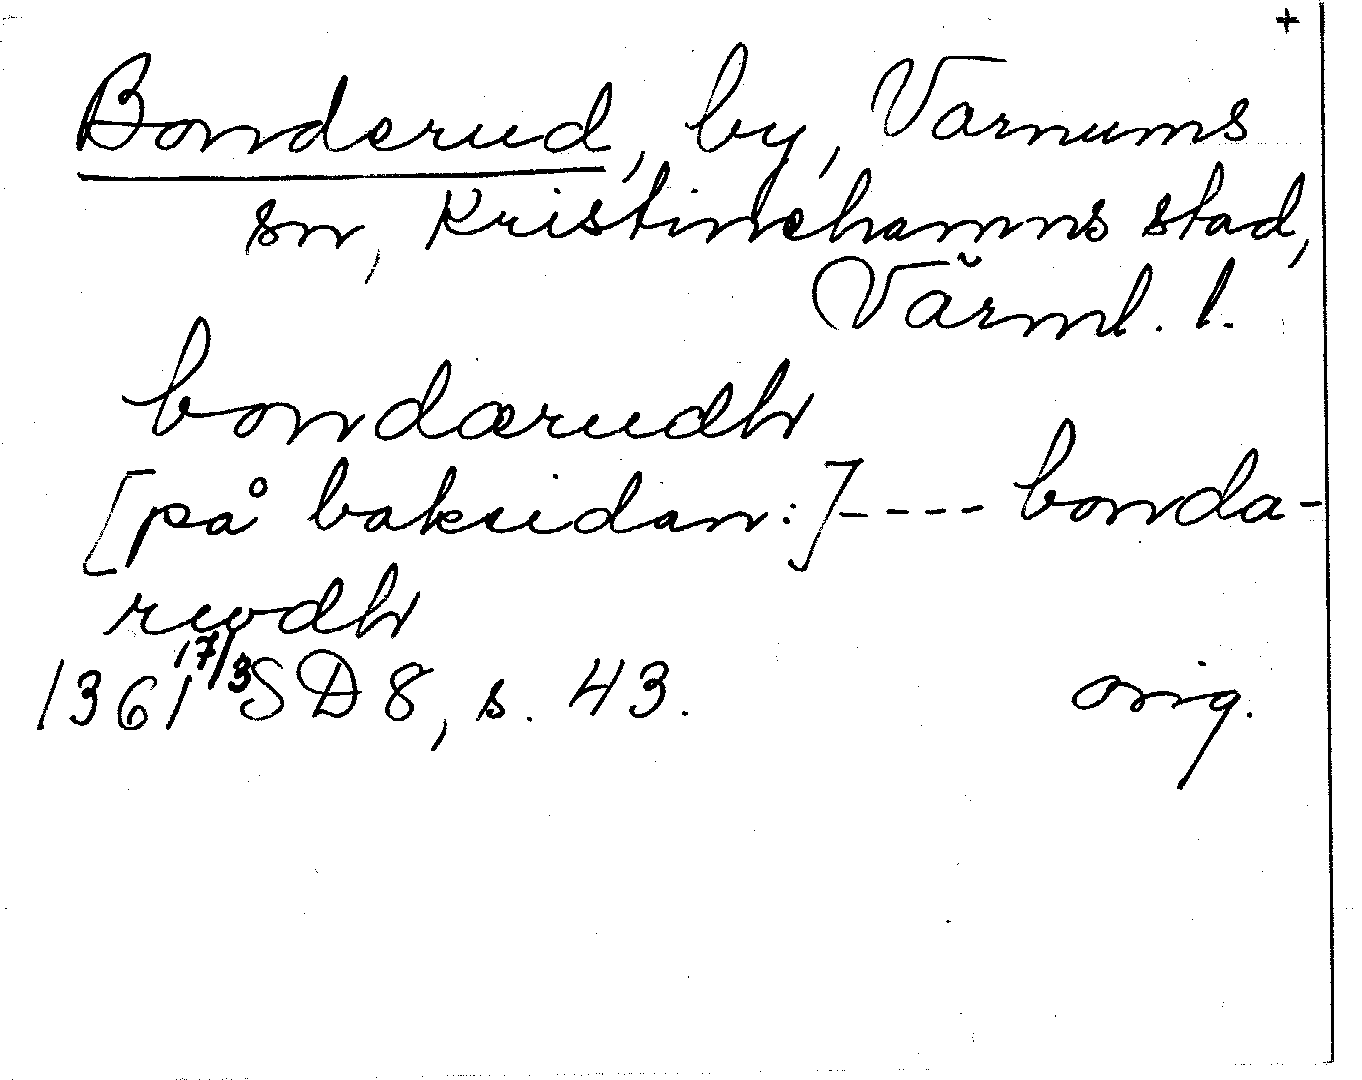 +
Bonderud, by, Varnums
sn, Kristinehamns stad,
Värml. l.
bondærudh
[på baksidan:]---- bonda-
rwdh
1361 17/3 SD 8, s. 43. orig.